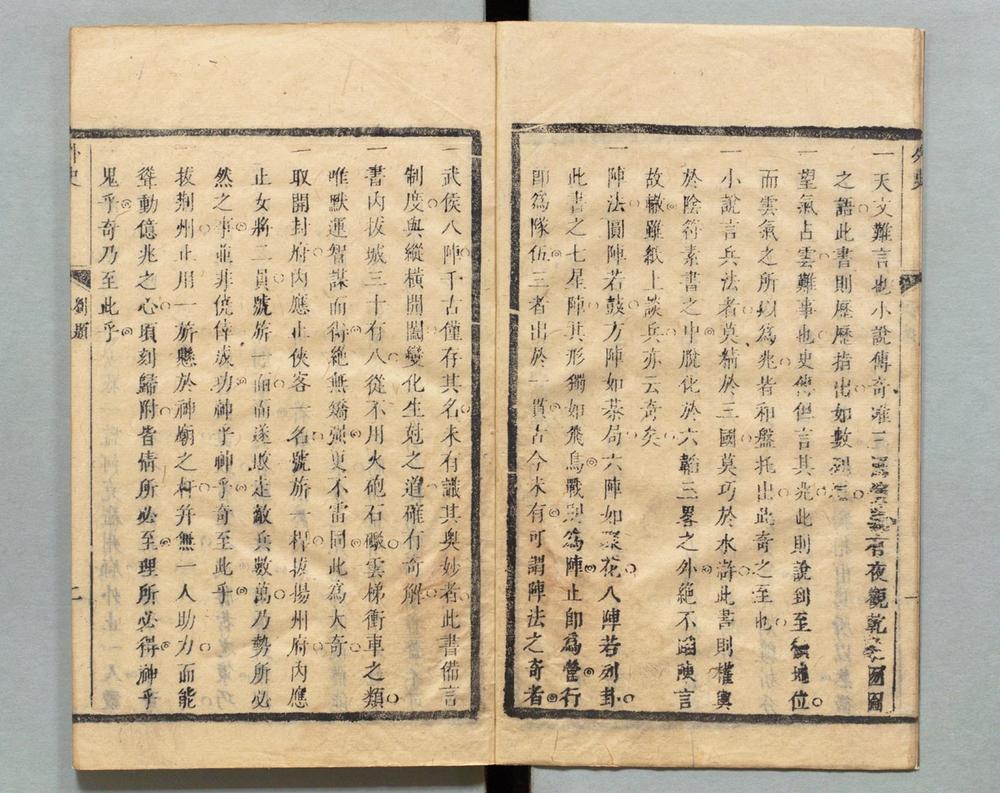 外史
一
一天文難言也小說傳奇惟三國演義有夜觀乾象圖
之語此書則歷歷指出如數列眉
一望氣占雲難事也史傳但言其兆此則說到至極地位
而雲氣之所以為兆者和盤托出此奇之至也
一小說言兵法者莫精於三國莫巧於水滸此書則權輿
於陰符素書之中脫化於六韜三畧之外絕不蹈陳言
故轍雖紙上談兵亦云奇矣
一陣法圓陣若鼓方陣如棊局六陣如花八陣若列卦
此書之七星陣其形獨如飛鳥戰則為陣止即為營行
即為隊伍三者出於一貫古今未有可謂陣法之奇者
一武侯八陣千古僅存其名未有識其奧妙者此書備言
制度與縱橫開闔變化生尅之道確有奇解
一書內拔城三十有八從不用火砲石礮雲梯衝車之類
唯默運智謀而得絕無矯強更不雷同此為大奇
一取開封府內應止俠客若名號旂一桿拔揚州府內應
止女將二員號旂而而遂敗走敵兵數萬乃勢所必
然之事並非僥倖成功神乎神乎奇至此乎
一拔荊州止用一旂懸於神廟之杆并無一人助力而能
聳動億兆之心頃刻歸附皆情所必至理所必得神乎
鬼乎奇乃至此乎
外史
劉題
二